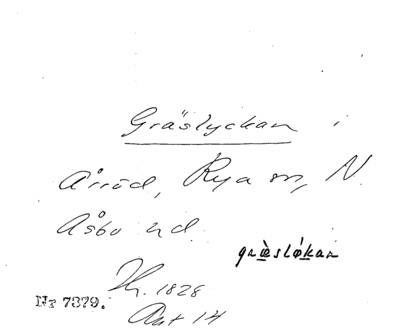 Gräslyckan i
Årröd, Rya sn, N.
Åsbo hd.
græ̀slǿkan
Hr. 1828
Akt 14
Nr 7379.